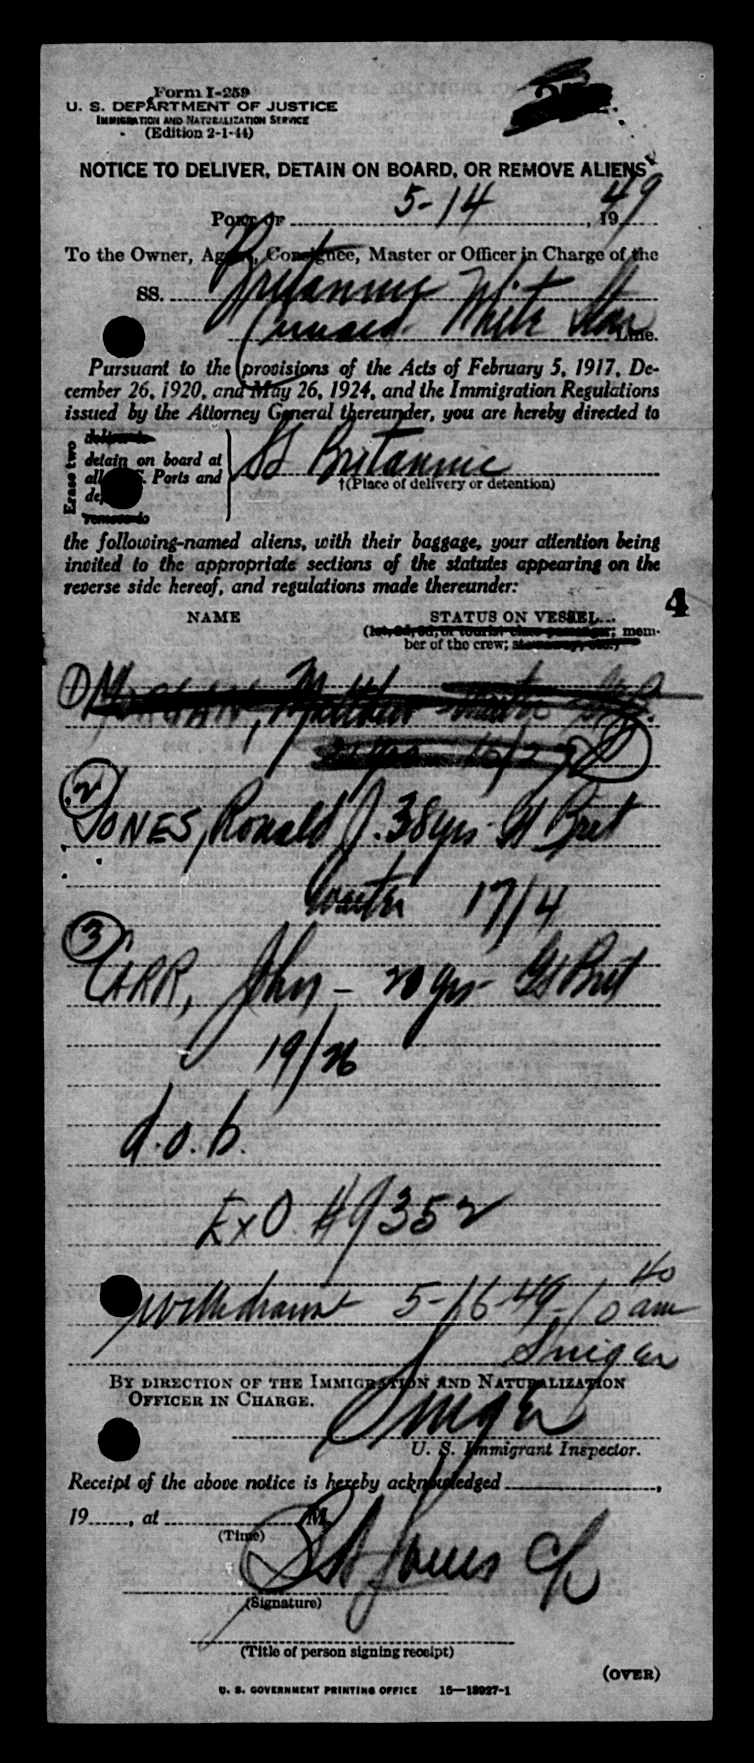 Form I-259
U. S. DEPARTMENT OF JUSTICE
IMMIGRATION AND NATURALIZATION SERVICE
(Edition 2-1-44)
NOTICE TO DELIVER, DETAIN ON BOARD, OR REMOVE ALIENS
PORT OF 5-14, 1949
To the Owner, Agent, Consignee, Master or Officer in Charge of the
SS. Britannic
Cunard White Star Line.
Pursuant to the provisions of the Acts of February 5, 1917, De-
cember 26, 1920, and May 26, 1924, and the Immigration Regulations
issued by the Attorney General thereunder, you are hereby directed to
Erase two
deliver to
detain on board at
all U. S. Ports and
remove to
SS Britannic
†(Place of delivery or detention)
the following-named aliens, with their baggage, your attention being
invited to the appropriate sections of the statutes appearing on the
reverse side hereof, and regulations made thereunder:
4
NAME STATUS ON VESSEL
(1st, 2d, 3d, or tourist class passenger; mem-
ber of the crew; stowaway, etc.)
1 MORGAN, Matthew
2
JONES, Ronald J. 38 yrs - Gt Brit
waiter 17/4
3
CARR, John - 20 yrs - Gt Brit
19/26
d.o.b.
ExO #9352
Withdrawn 5-16-49 - 10 40 am
BY DIRECTION OF THE IMMIGRATION AND NATURALIZATION
OFFICER IN CHARGE.
U. S. Immigrant Inspector.
Receipt of the above notice is hereby acknowledged ,
19 , at M.
(Time)
(Signature)
(Title of person signing receipt)
(OVER)
U. S. GOVERNMENT PRINTING OFFICE 16—18927-1